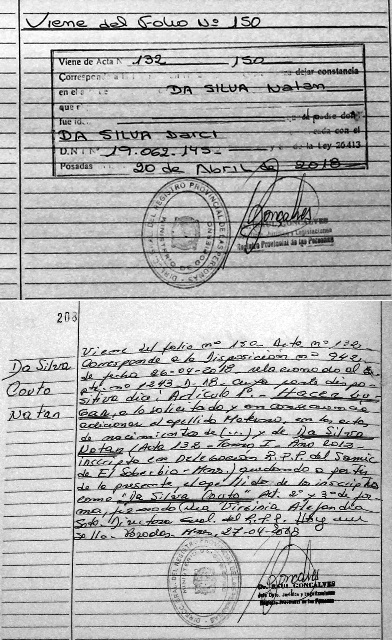 Viene del Folio Nº 150
Viene de Acta Nº 132 150
Correspond dejar constancia
en el DA SILVA Natan
que
fue id padre don
DA SILVA Darci con el
D.N.I Nº 19.062.145 y de la Ley 26413
Posadas 20 de Abril de 2018
REGISTRO PROVINCIAL DE LAS PERSONAS
GONCALVES
Jurídica y Legislaciones
Registro Provincial de las Personas
208
Da Silva
Couto
Natan
Viene del folio nº 150 Acta nº 132.
Corresponde a la Disposición nº 942
de fecha 26-04-2018, relacionado al Ex
pte. nº 1243 D-18- cuya parte dispo-
sitiva dice: Artículo 1º- Hacer lu-
gar, a lo solicitado y en consecuencia
adicionar el apellido Materno, en las actas
de nacimientos de (...) y de Da Silva
Natan (Acta 132- Tomo I- Año 2012
inscripto en Delegación R.P.P. del Samic
de El Soberbio - Mnes.) quedando a partir
de la presente el apellido de los inscriptos
como "Da Silva Couto" Art. 2º y 3º de for
ma, firmado Virginia Alejandra
Soto. Directora Gral. del R.P.P. Hay un
sello. Posadas Mnes, 27-04-2018
Dr. RAUL GONCALVES
Jefe Dpto. Jurídica y Legislaciones
Registro Provincial de las Personas